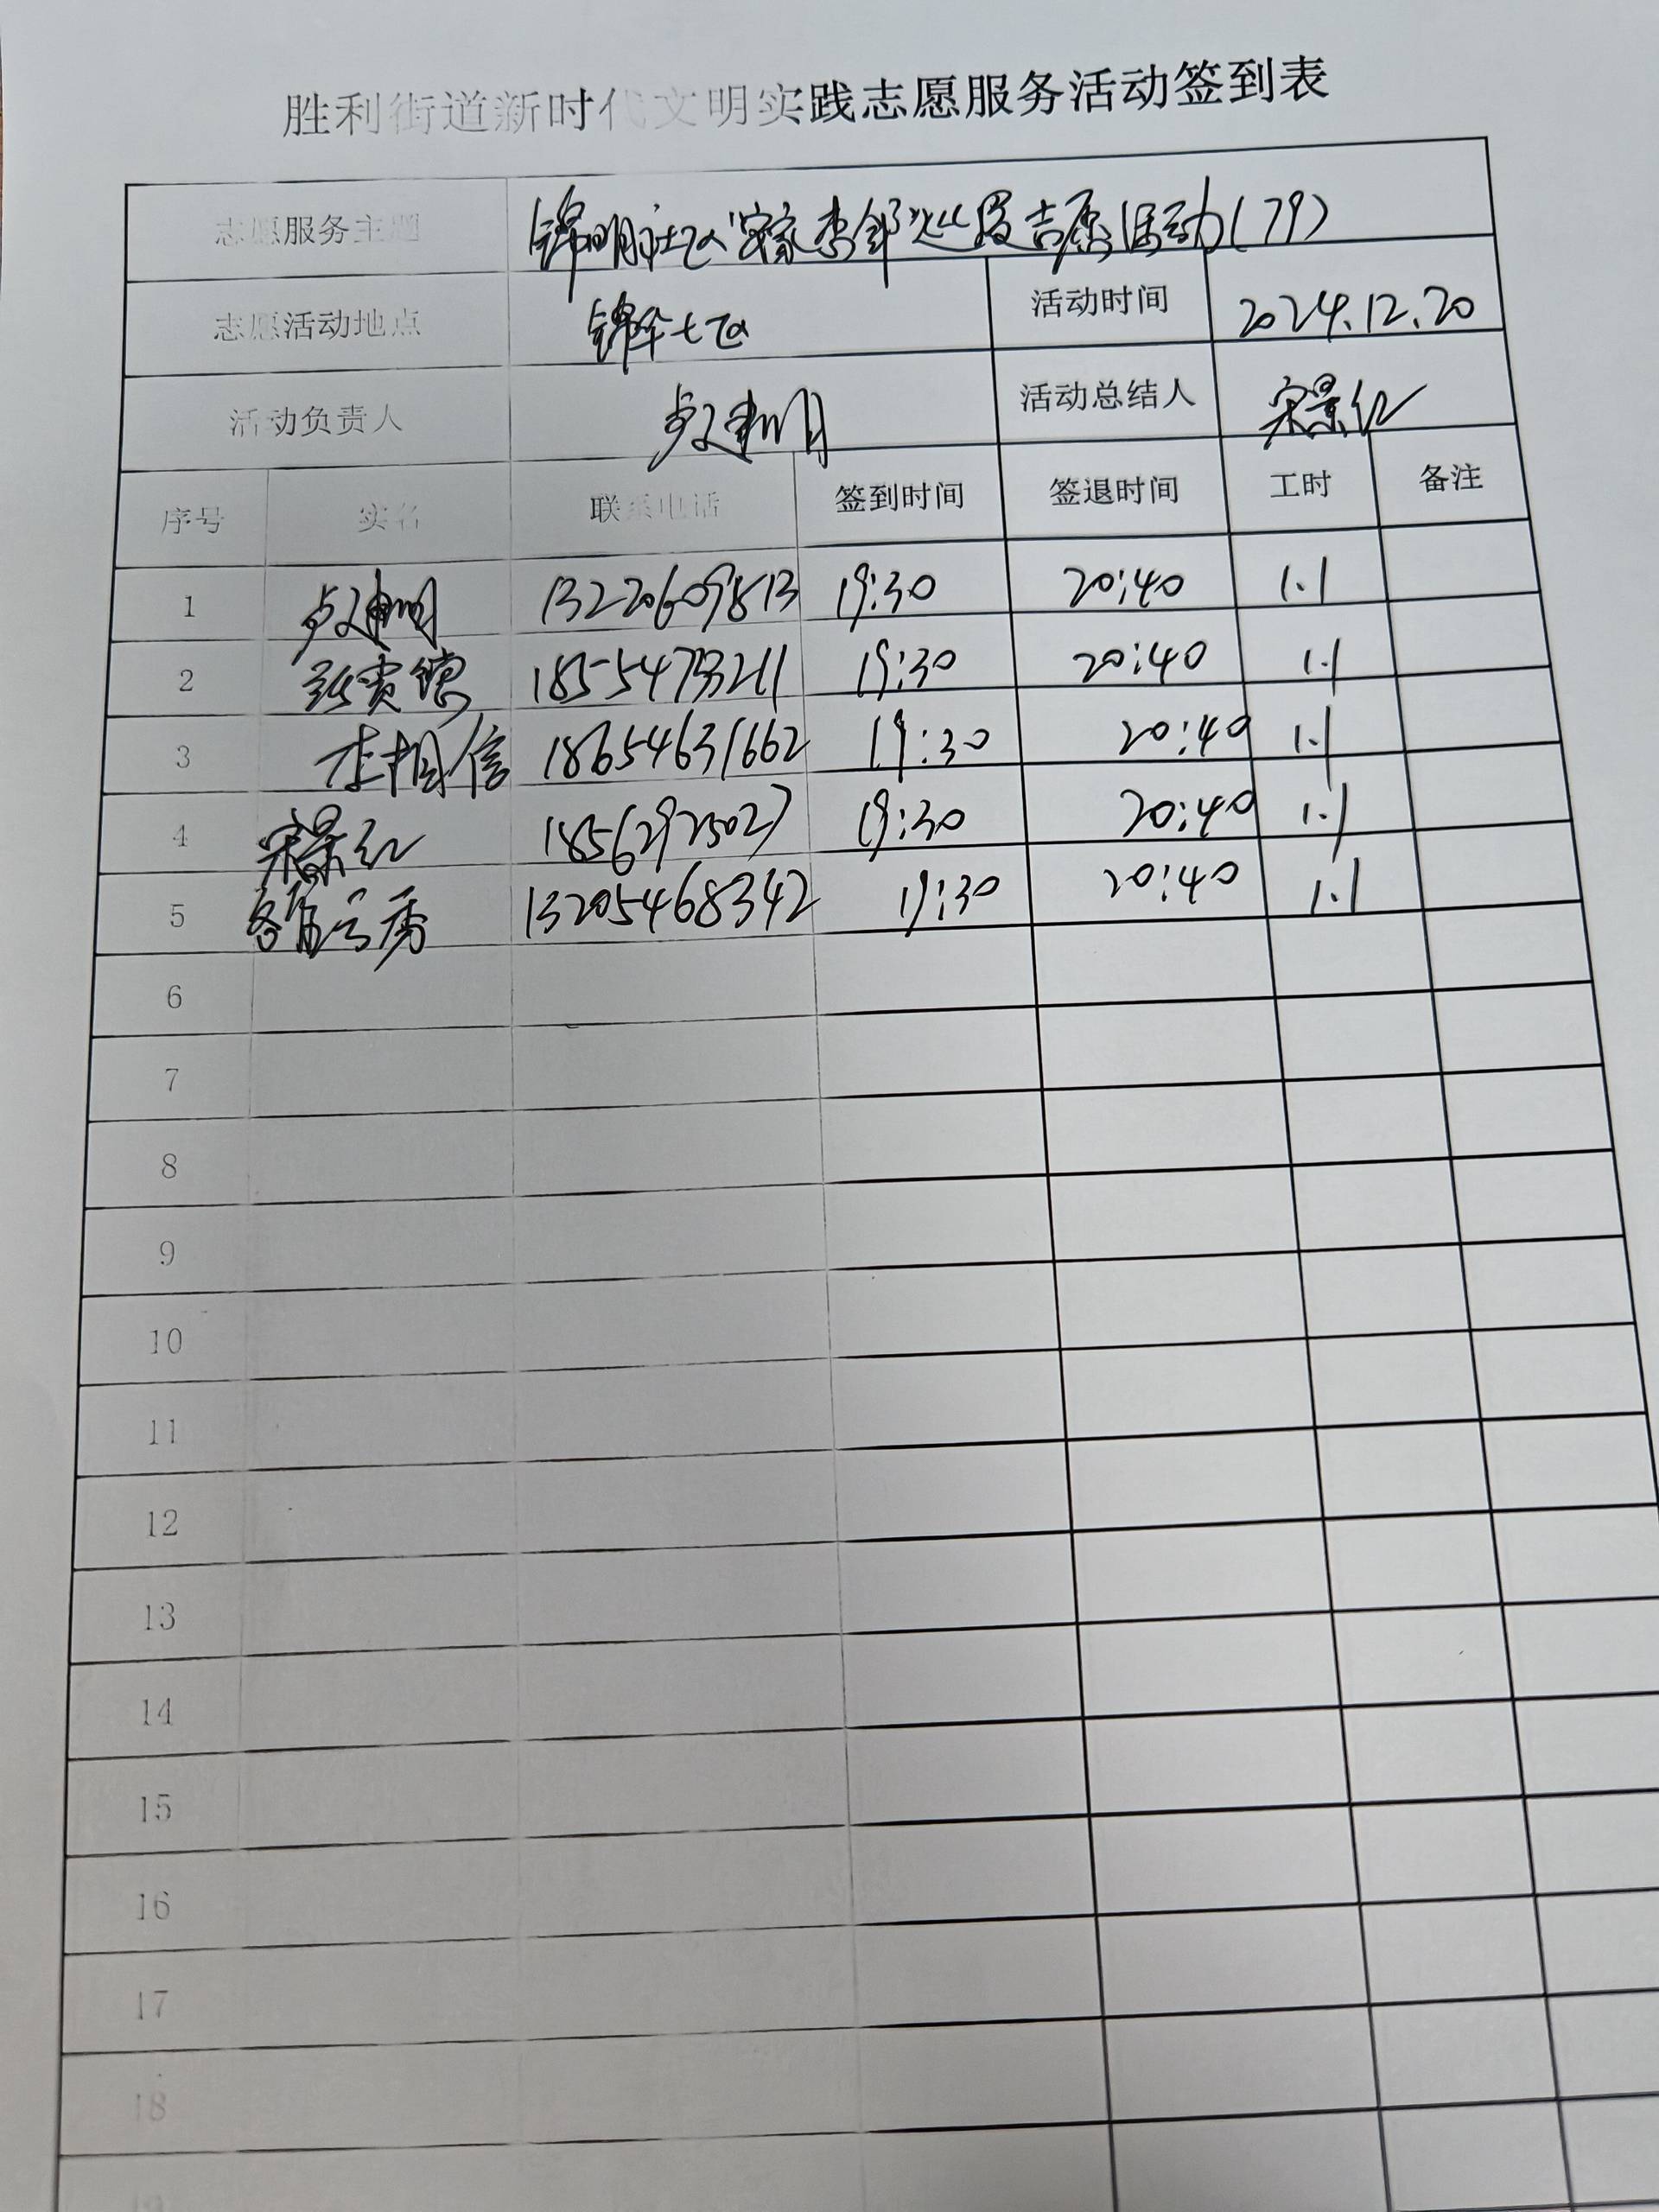 胜利街道新时代文明实践志愿服务活动签到表
志愿服务主题 锦明社区"安家李邹"巡逻志愿活动(79)
志愿活动地点 锦华七区 活动时间 2024.12.20
活动负责人 建明 活动总结人 宋景红
序号 实名 联系电话 签到时间 签退时间 工时 备注
1 建明 13220609813 19:30 20:40 1.1
2 张贵德 18554793211 19:30 20:40 1.1
3 李相信 18654631662 19:30 20:40 1.1
4 宋景红 18562925027 19:30 20:40 1.1
5 秀 13205468342 19:30 20:40 1.1
6
7
8
9
10
11
12
13
14
15
16
17
18
19